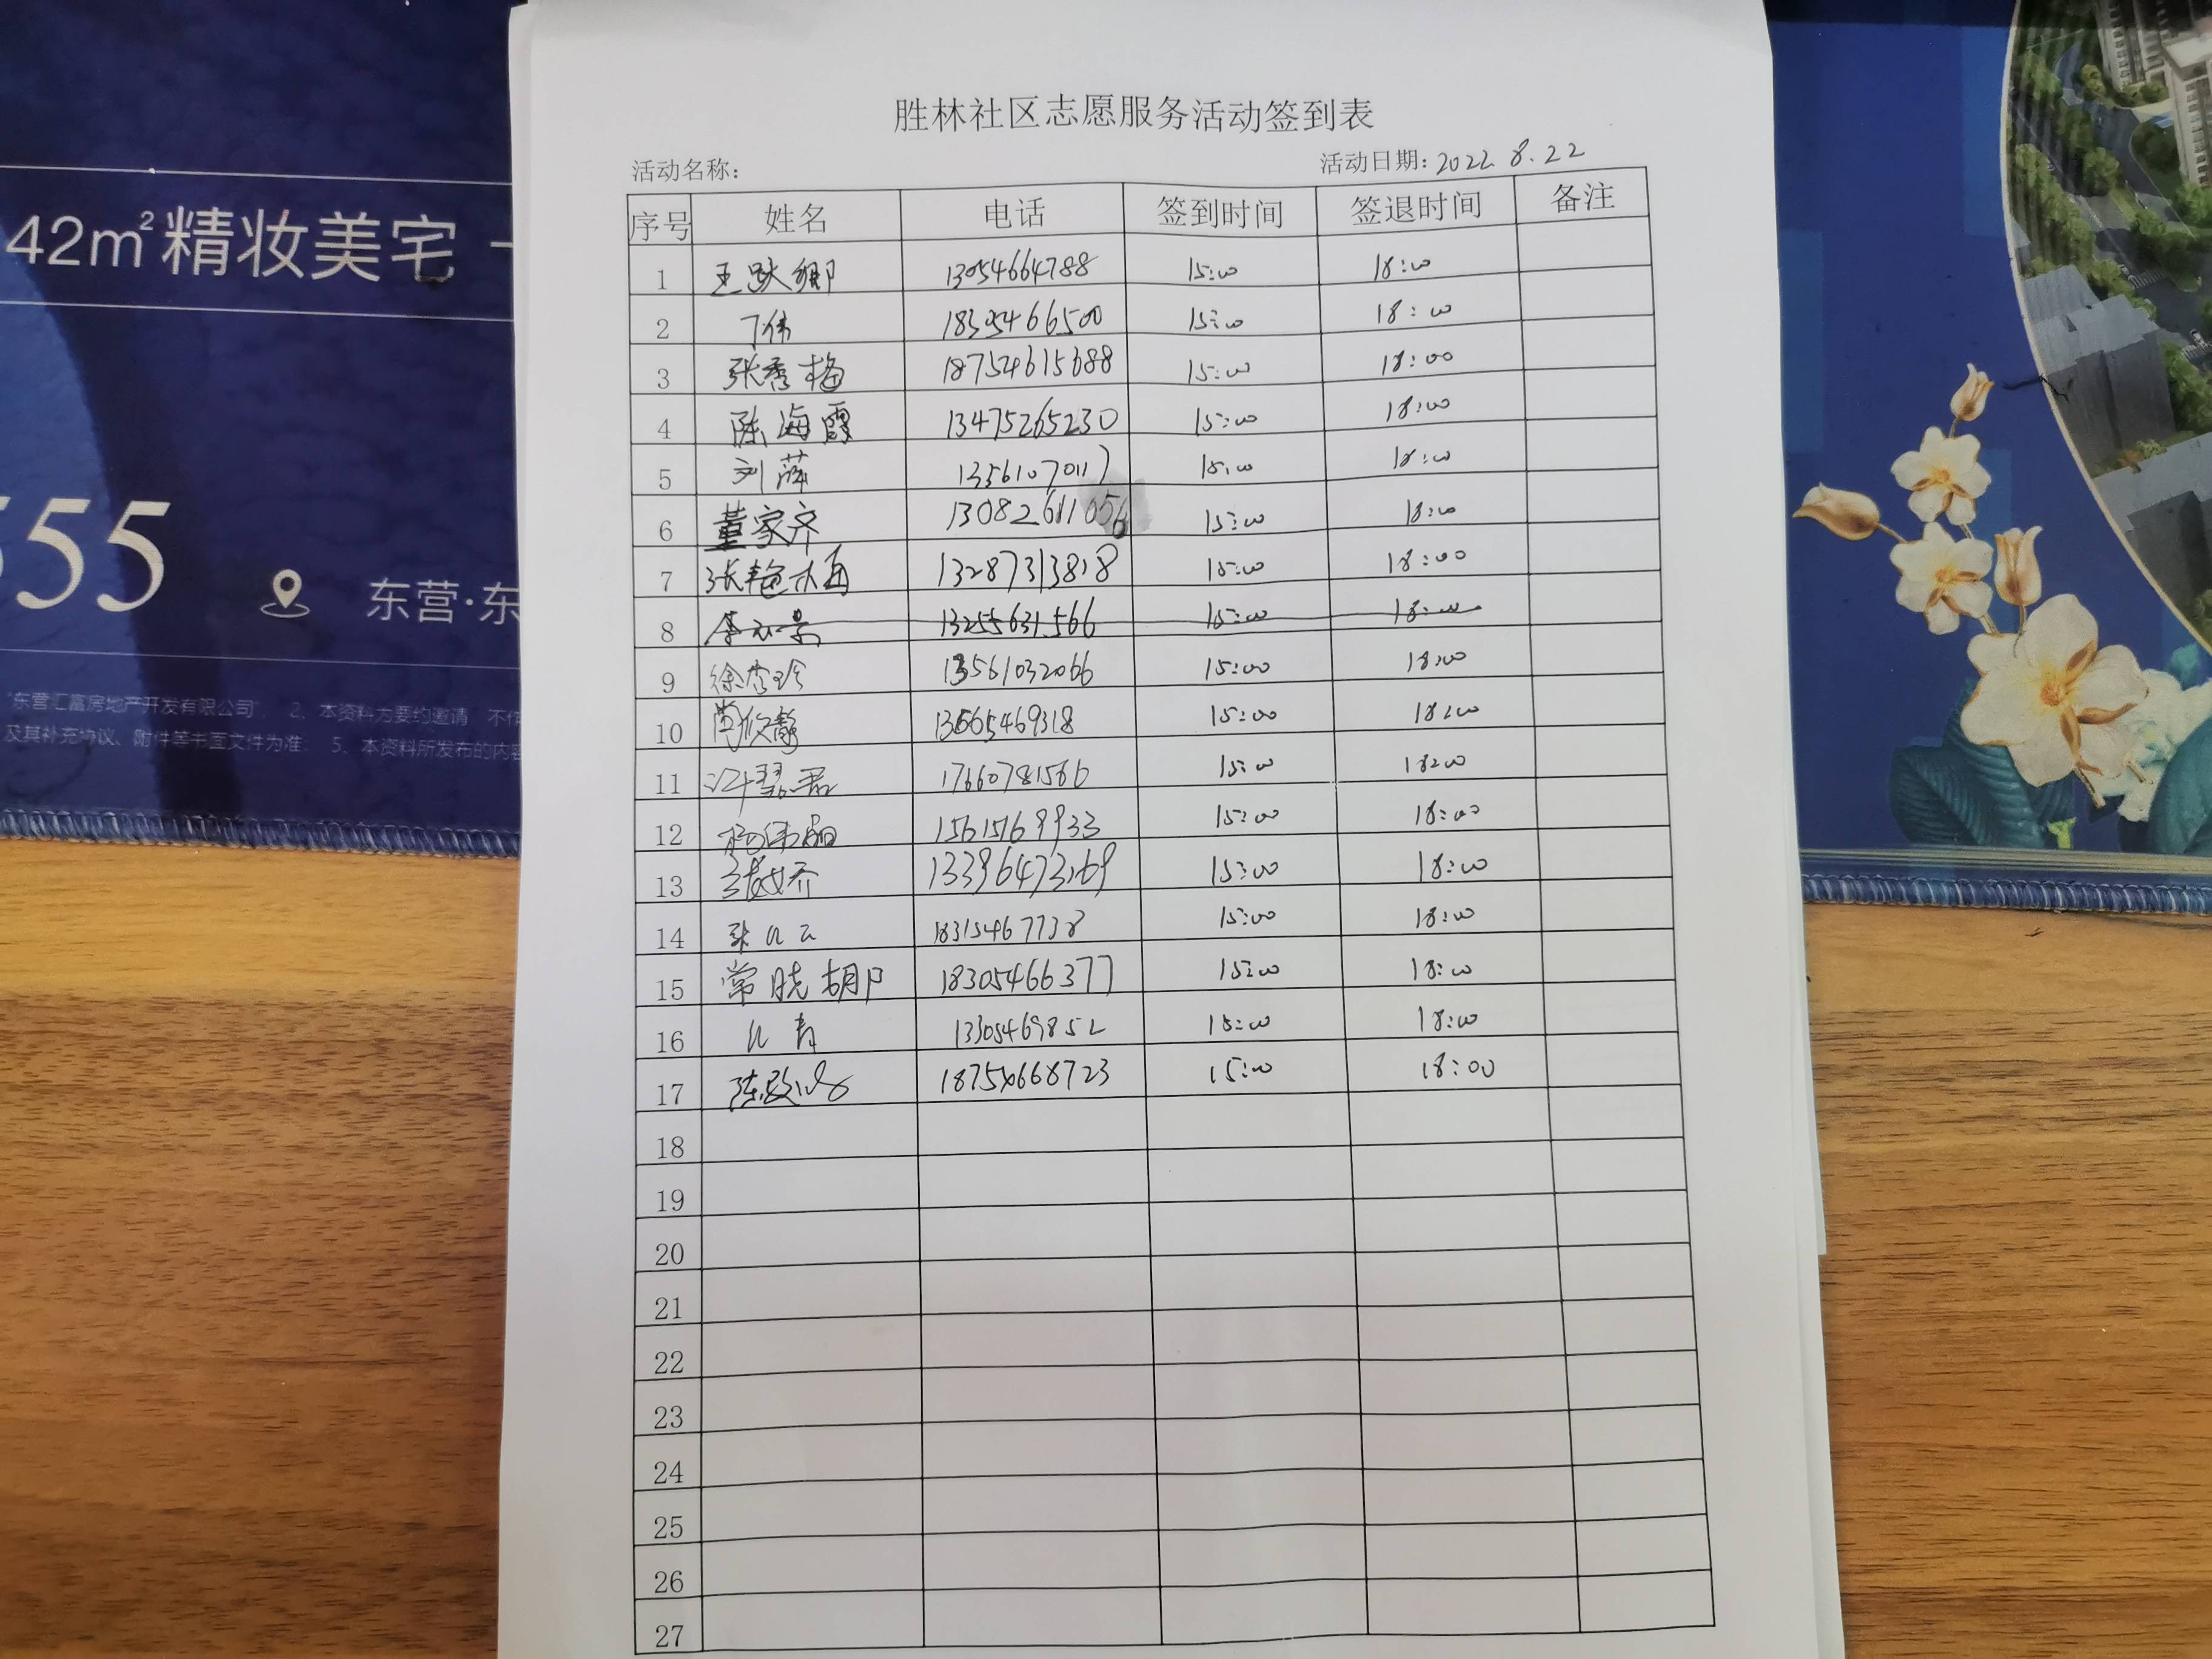 胜林社区志愿服务活动签到表
活动名称: 活动日期: 2022 8.22
序号 姓名 电话 签到时间 签退时间 备注
1 王跃卿 13054664788 15:00 18:00
2 丁伟 18395466500 15:00 18:00
3 张秀梅 18754615688 15:00 18:00
4 陈海霞 13475265230 15:00 18:00
5 刘萍 13561070117 15:00 18:00
6 董家齐 13082611056 15:00 18:00
7 张艳梅 13287313818 15:00 18:00
8 13255631566 15:00 18:00
9 徐秀珍 13561032066 15:00 18:00
10 尚欣静 13665469318 15:00 18:00
11 17660781566 15:00 18:00
12 杨伟娟 15615169933 15:00 18:00
13 13396473169 15:00 18:00
14 18315467738 15:00 18:00
15 常晓 18305466377 15:00 18:00
16 13305469852 15:00 18:00
17 18754668723 15:00 18:00
18
19
20
21
22
23
24
25
26
27
42m²精妆美宅
555
东营·东
"东营汇富房地产开发有限公司"。 2、本资料为要约邀请 不作
及其补充协议、附件等书面文件为准; 5、本资料所发布的内容